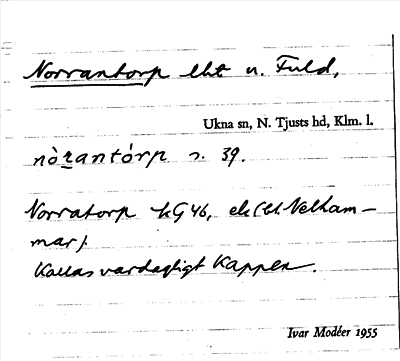 Norrantorp lht u. Fuld,
Ukna sn, N. Tjusts hd, Klm. l.
nòr̲antórp s. 39.
Norratorp kG 46, ek (bl. Nelham-
mar).
Kallas vardagligt Kappen.
Ivar Modéer 1955